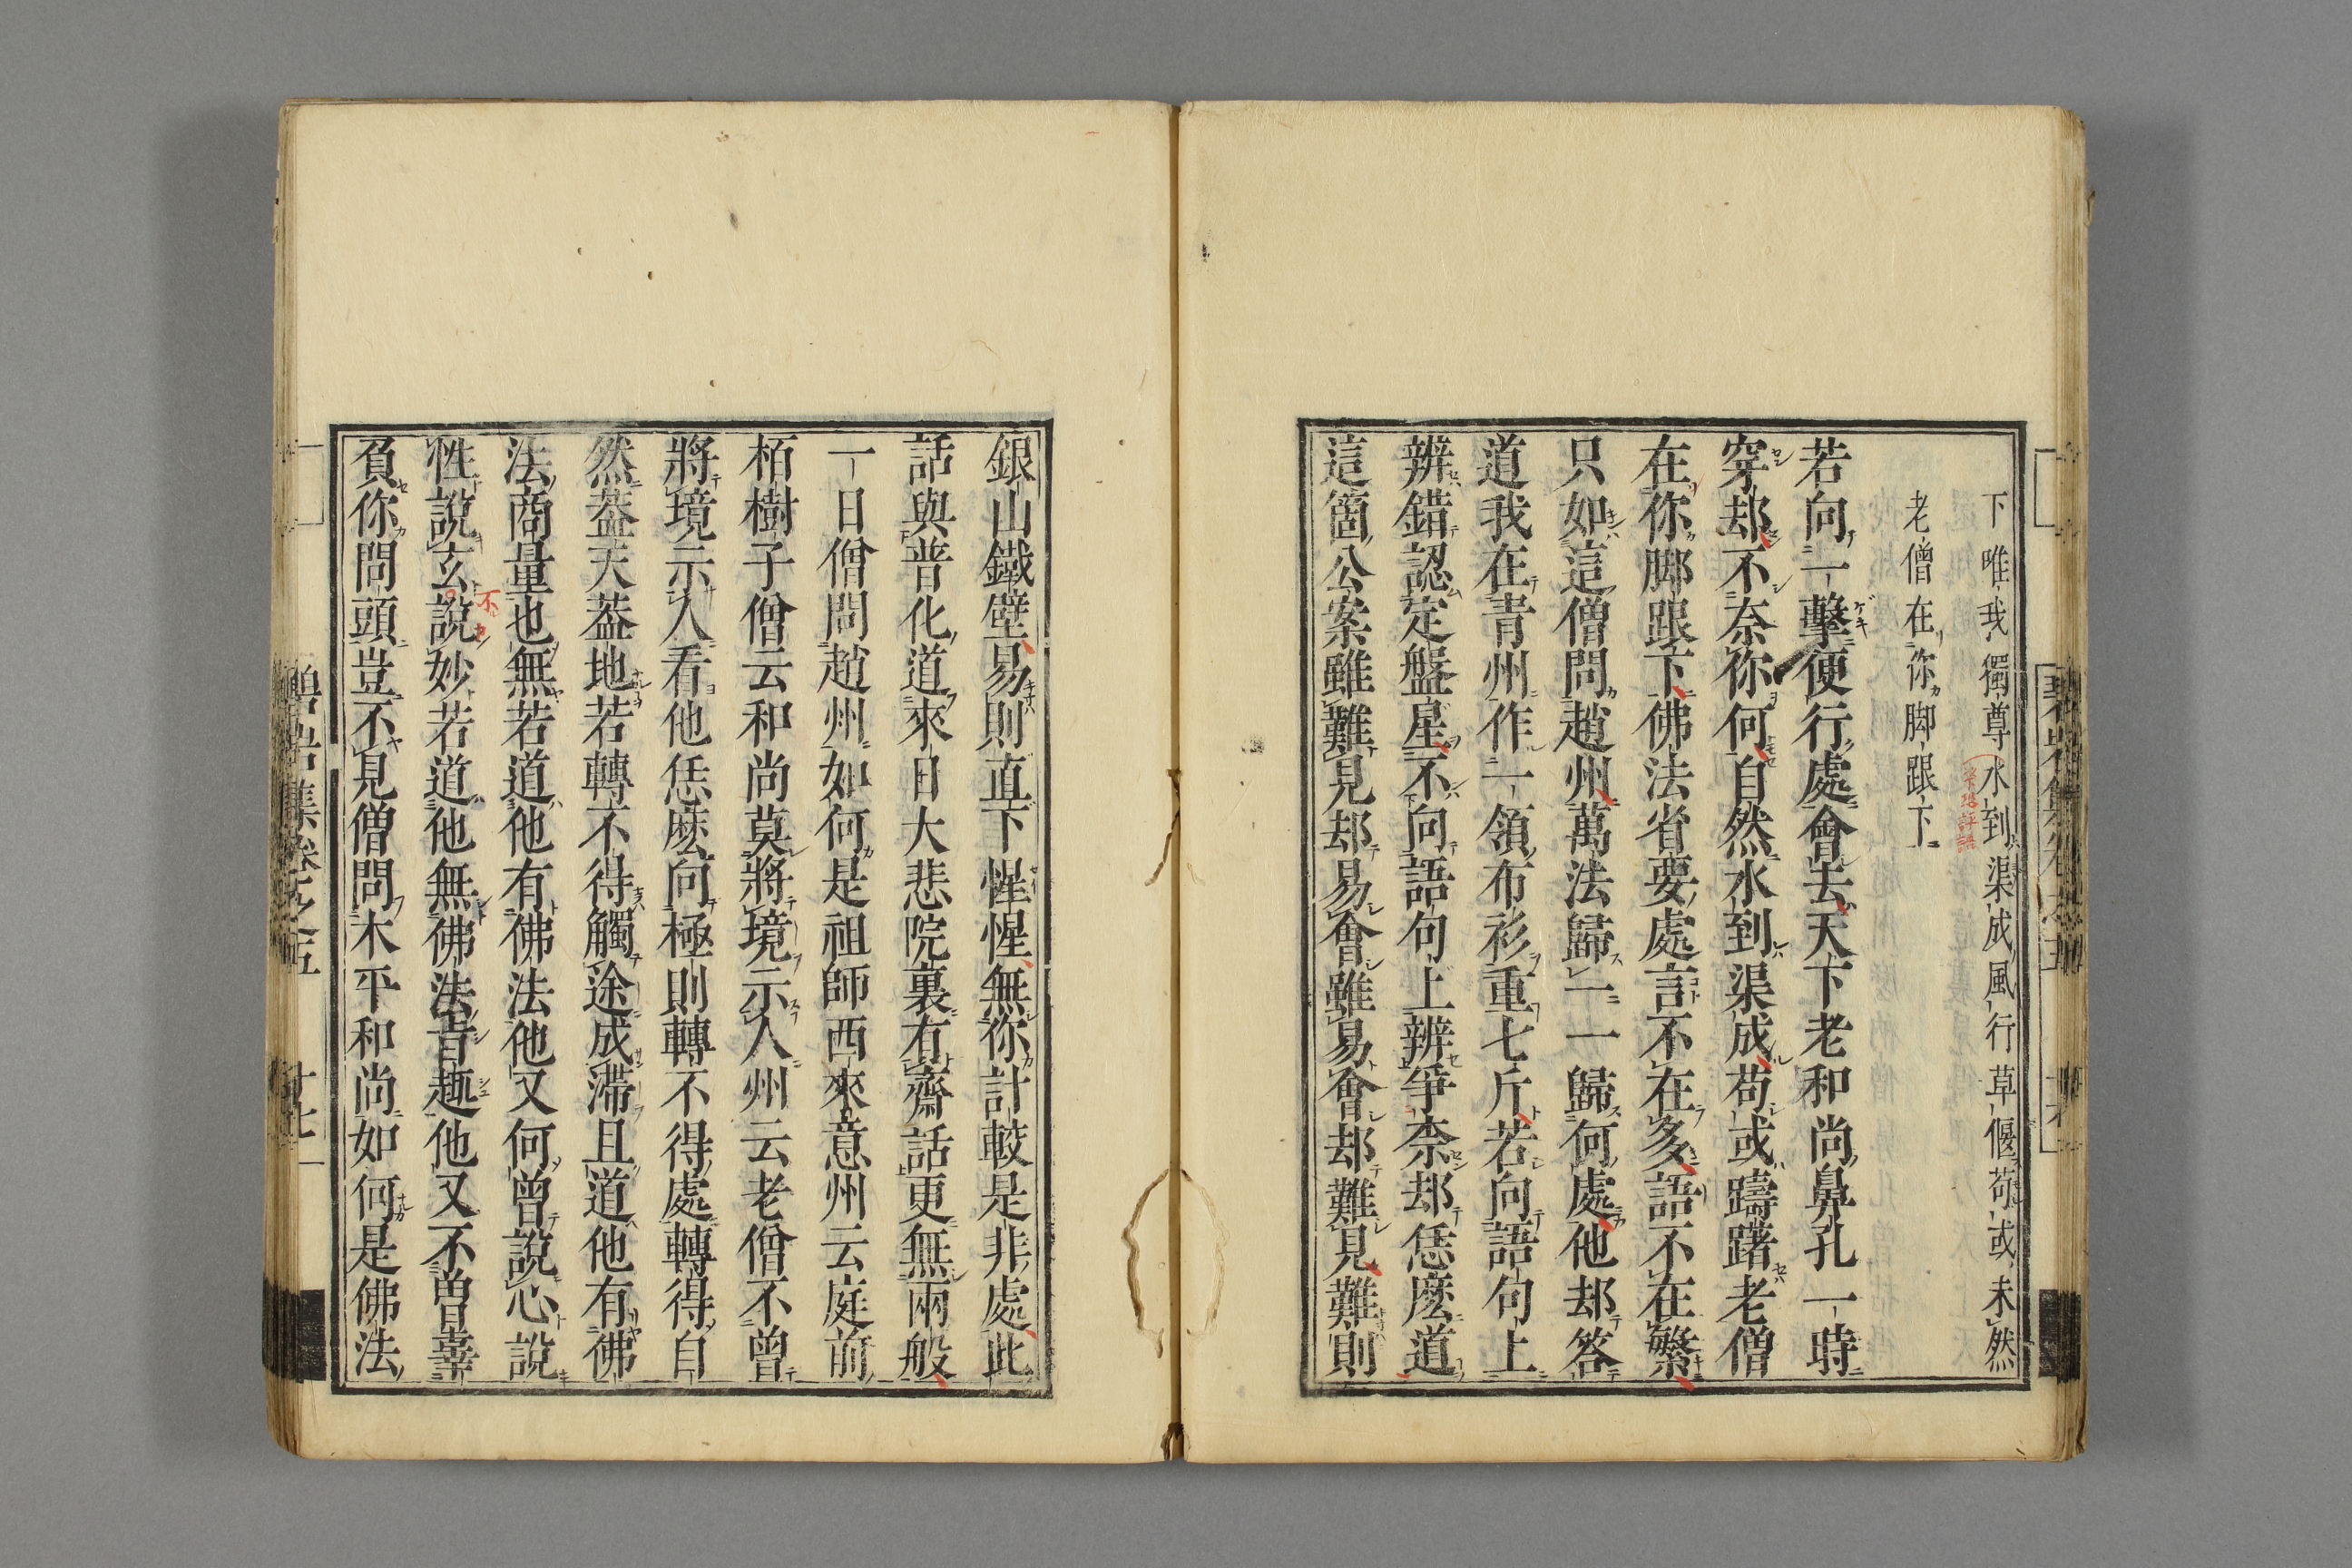 下唯我獨尊水到渠成風行草偃苟或未然
老僧在你脚跟下
若向一擊便行處會去天下老和尚鼻孔一時
穿却不奈你何自然水到渠成苟或躊躇老僧
在你脚跟下佛法省要處言不在多語不在繁
只如這僧問趙州萬法歸一一歸何處他却答
道我在青州作一領布衫重七斤若向語句上
辨錯認定盤星不向語句上辨爭柰却恁麽道
這箇公案雖難見却易會雖易會却難見難則
銀山鐵壁易則直下惺惺無你計較是非處此
話與普化道來日大悲院裏有齋話更無兩般
一日僧問趙州如何是祖師西來意州云庭前
栢樹子僧云和尚莫將境示人州云老僧不曾
將境示人看他恁麽向極則轉不得處轉得自
然葢天葢地若轉不得觸途成滯且道他有佛
法商量也無若道他有佛法他又何曾說心說
性說玄說妙若道他無佛法旨趣他又不曾辜
負你問頭豈不見僧問木平和尚如何是佛法
碧岩集卷之五
十七